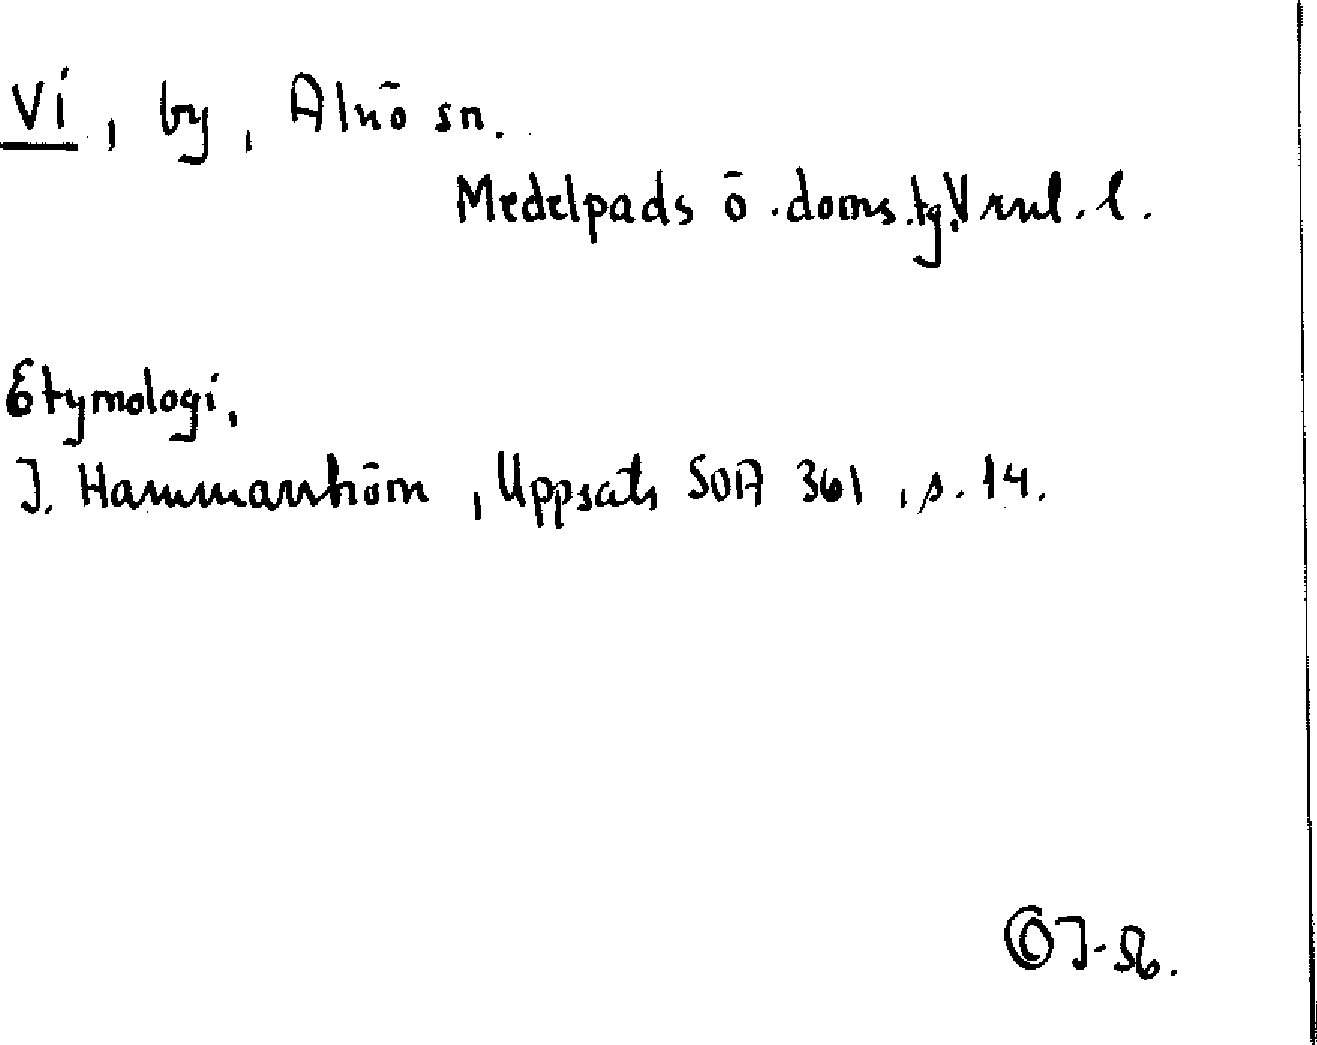 Vi, by, Alnö sn.
Medelpads ö. doms.tg, Vrnl. l.
Etymologi,
J. Hammarström, Uppsats SOA 361, s. 14.